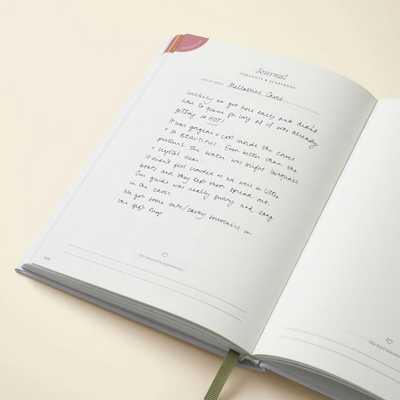 Journal
THOUGHTS & MEMORIES
LOCATION Melissani Caves
Luckily we got here early and didn't
have to queue for long as it was already
getting so HOT!
It was gorgeous + cool inside the caves
+ so BEAUTIFUL. Even better than the
pictures. The water was bright turquoise
+ crystal clear.
It didn't feel crowded as we were in little
boats and they kept them spread out.
Our guide was really funny and sang
in the caves.
We got some cute/tacky souvenirs in
the gift shop
My favourite
My favourite